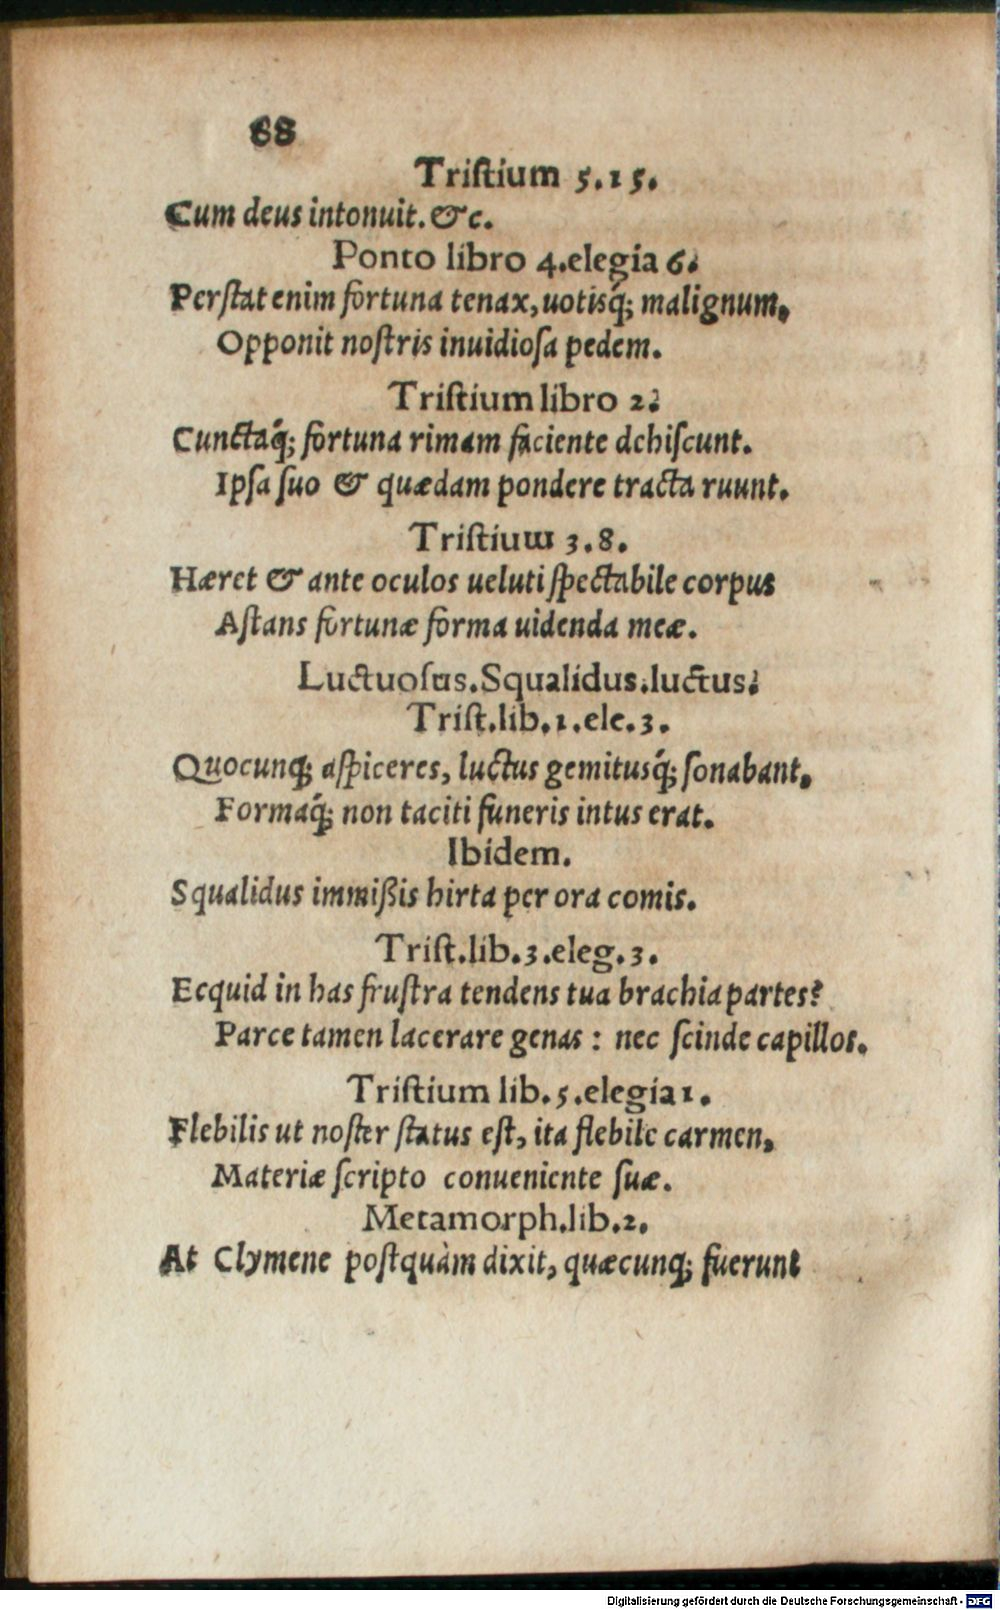 68
Tristium 5.15.
Cum deus intonuit. &c.
Ponto libro 4.elegia 6.
Perſtat enim fortuna tenax, uotisq́; malignum,
Opponit noſtris inuidioſa pedem.
Triſtium libro 2.
Cunctaq́; fortuna rimam faciente dehiſcunt.
Ipſa ſuo & quædam pondere tracta ruunt.
Triſtium 3.8.
Hæret & ante oculos ueluti ſpectabile corpus
Aſtans fortunæ forma uidenda meæ.
Luctuoſus. Squalidus. luctus.
Triſt.lib.1.ele.3.
Quocunq; aſpiceres, luctus gemitusq́; ſonabant,
Formaq́; non taciti funeris intus erat.
Ibidem.
Squalidus immißis hirta per ora comis.
Triſt.lib.3.eleg.3.
Ecquid in has fruſtra tendens tua brachia partes?
Parce tamen lacerare genas : nec ſcinde capillos.
Triſtium lib.5.elegia 1.
Flebilis ut noſter ſtatus eſt, ita flebile carmen,
Materiæ ſcripto conueniente ſuæ.
Metamorph.lib.2.
At Clymene poſtquàm dixit, quæcunq; fuerunt
Digitalisierung gefördert durch die Deutsche Forschungsgemeinschaft - DFG